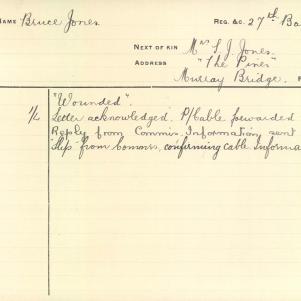 NAME Bruce Jones REG. &C. 27th Ba
NEXT OF KIN Mrs S. J. Jones
ADDRESS "The Pines"
Murray Bridge.
"Wounded".
1/2 Letter acknowledged. P/Cable forwarded
Reply from Commis. Information sent
Slip from Commrs, confirming cable Informa